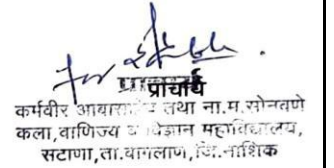 प्राचार्य
कर्मवीर तथा ना.म.सोनवणे
कला,वाणिज्य व विज्ञान महाविद्यालय,
सटाणा,ता.बागलाण,जि.नाशिक